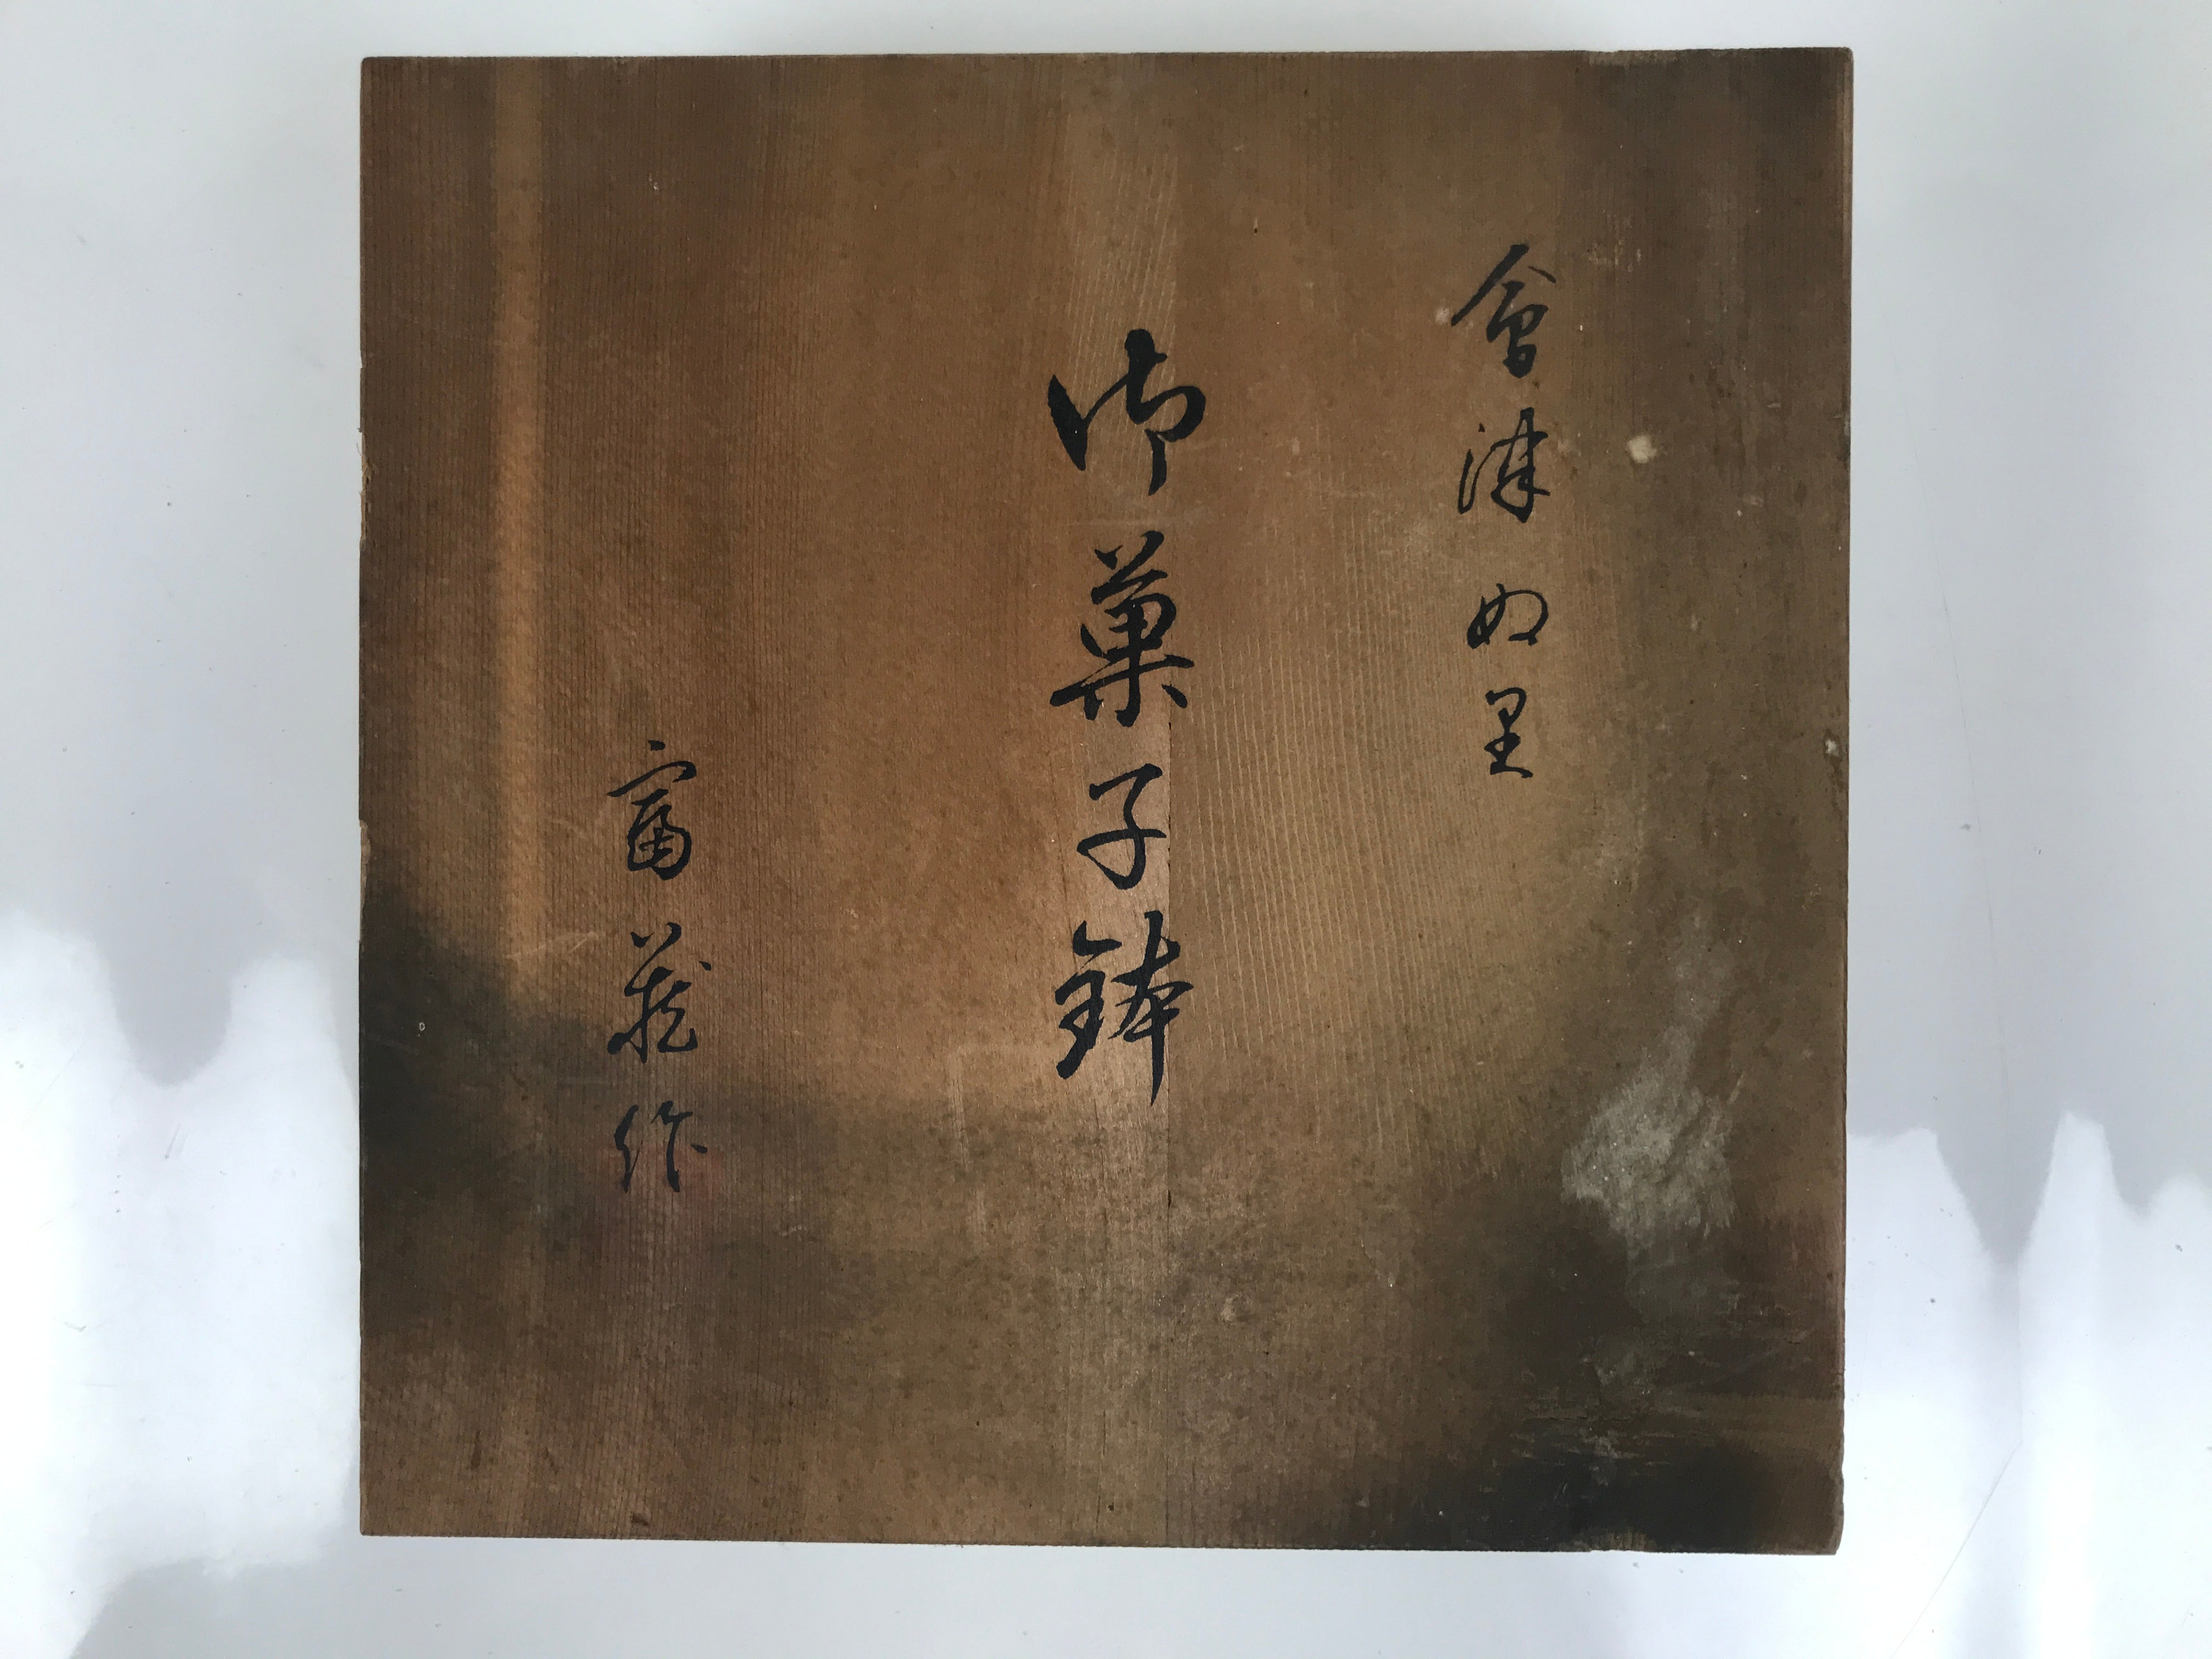 會津ぬ里
御菓子鉢
富蔵作